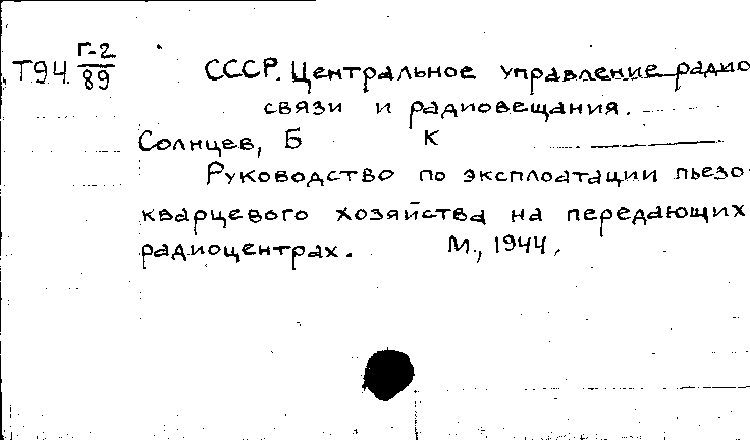 Т94. Г-2/89 СССР. Центральное управление радио
связи и радиовещания.
Солнцев, Б К
Руководство по эксплоатации пьезо
кварцевого хозяйства на передающих
радиоцентрах. М., 1944.